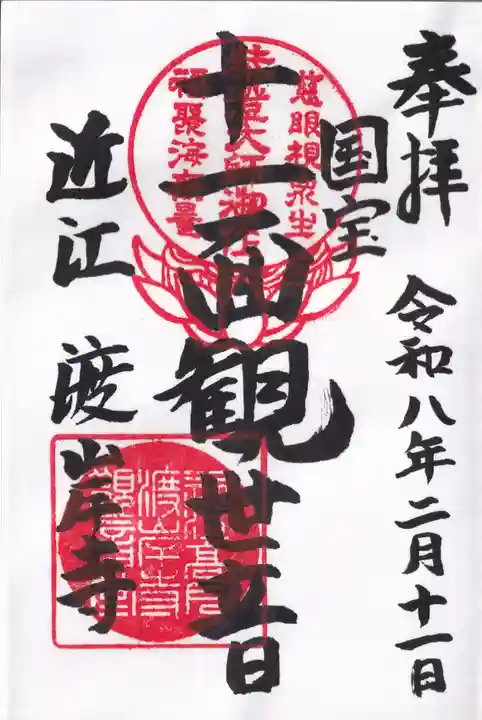 奉拝
令和八年二月十一日
国宝
十一面観世音
近江
渡岸寺
慈眼視衆生
福聚海無量